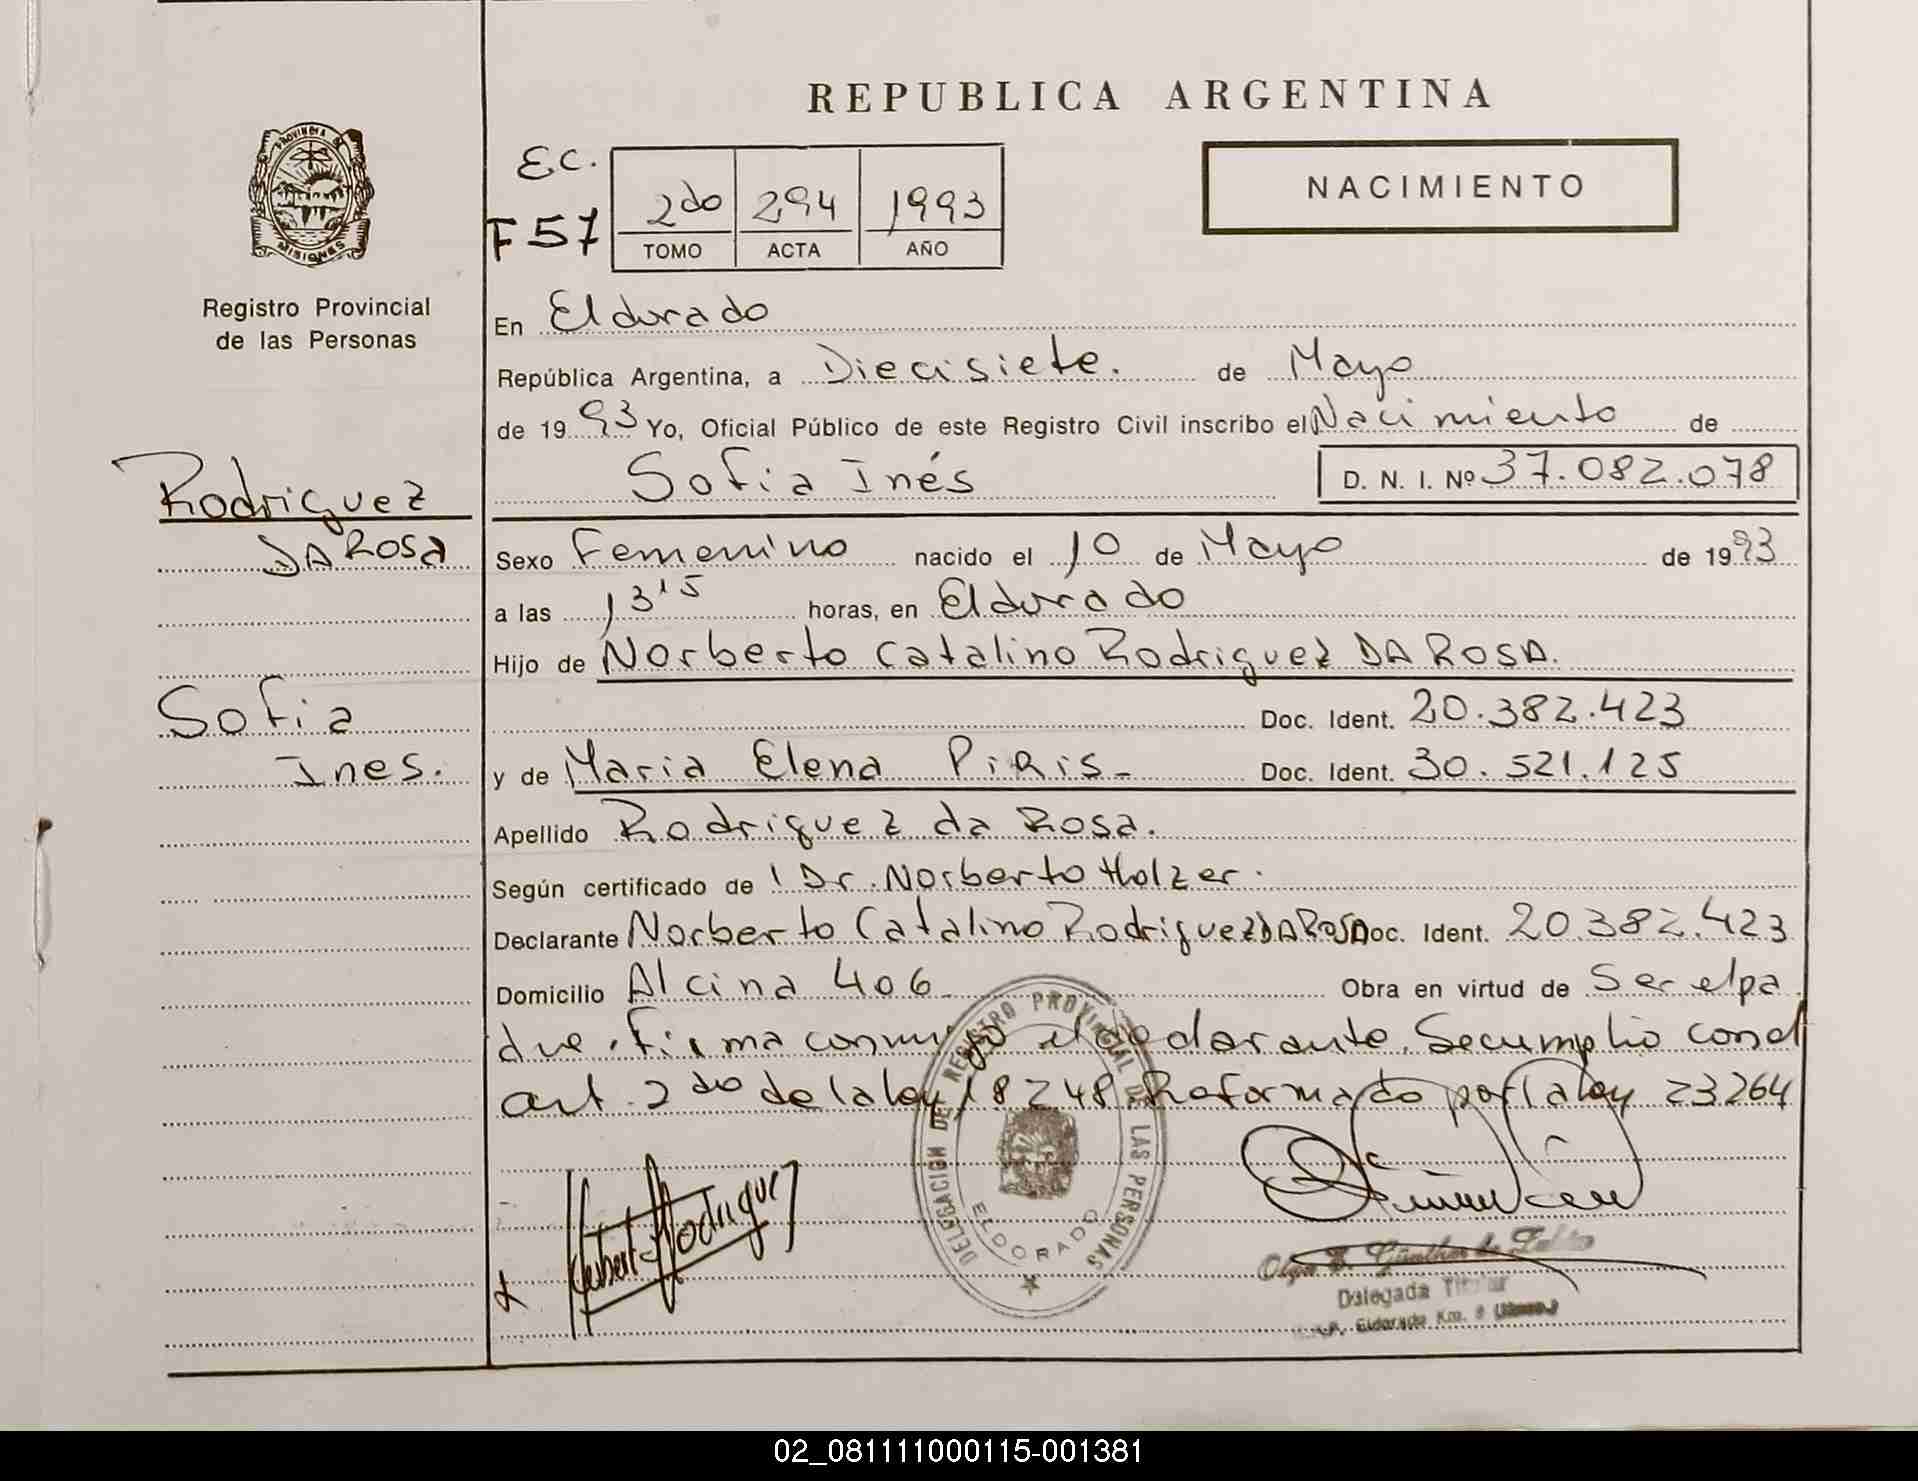 REPUBLICA ARGENTINA
PROVINCIA DE
MISIONES
Registro Provincial
de las Personas
EC.
F 57
2do 294 1993
TOMO ACTA AÑO
NACIMIENTO
En Eldorado
República Argentina, a Diecisiete. de Mayo
de 1993 Yo, Oficial Público de este Registro Civil inscribo el Nacimiento de
Sofia Inés D. N. I. Nº 37.082.078
Rodriguez
DA ROSA
Sofia
Ines.
Sexo Femenino nacido el 10 de Mayo de 1993
a las 13 15 horas, en Eldorado
Hijo de Norberto Catalino Rodriguez DA ROSA.
Doc. Ident. 20.382.423
y de Maria Elena PiRis Doc. Ident. 30.521.125
Apellido Rodriguez da Rosa.
Según certificado de Dr. Norberto Holzer.
Declarante Norberto Catalino Rodriguez DA ROSA Doc. Ident. 20.382.423
Domicilio Alcina 406 Obra en virtud de Ser el pa
dre. Firma conmigo el declarante. Se cumplio con el
art. 2do de la ley 18248 Reformado por la ley 23264
DELEGACION DE REGISTRO PROVINCIAL DE LAS PERSONAS
ELDORADO
Rodriguez
Olga
Delegada Titular
Eldorado Km.
02_081111000115-001381